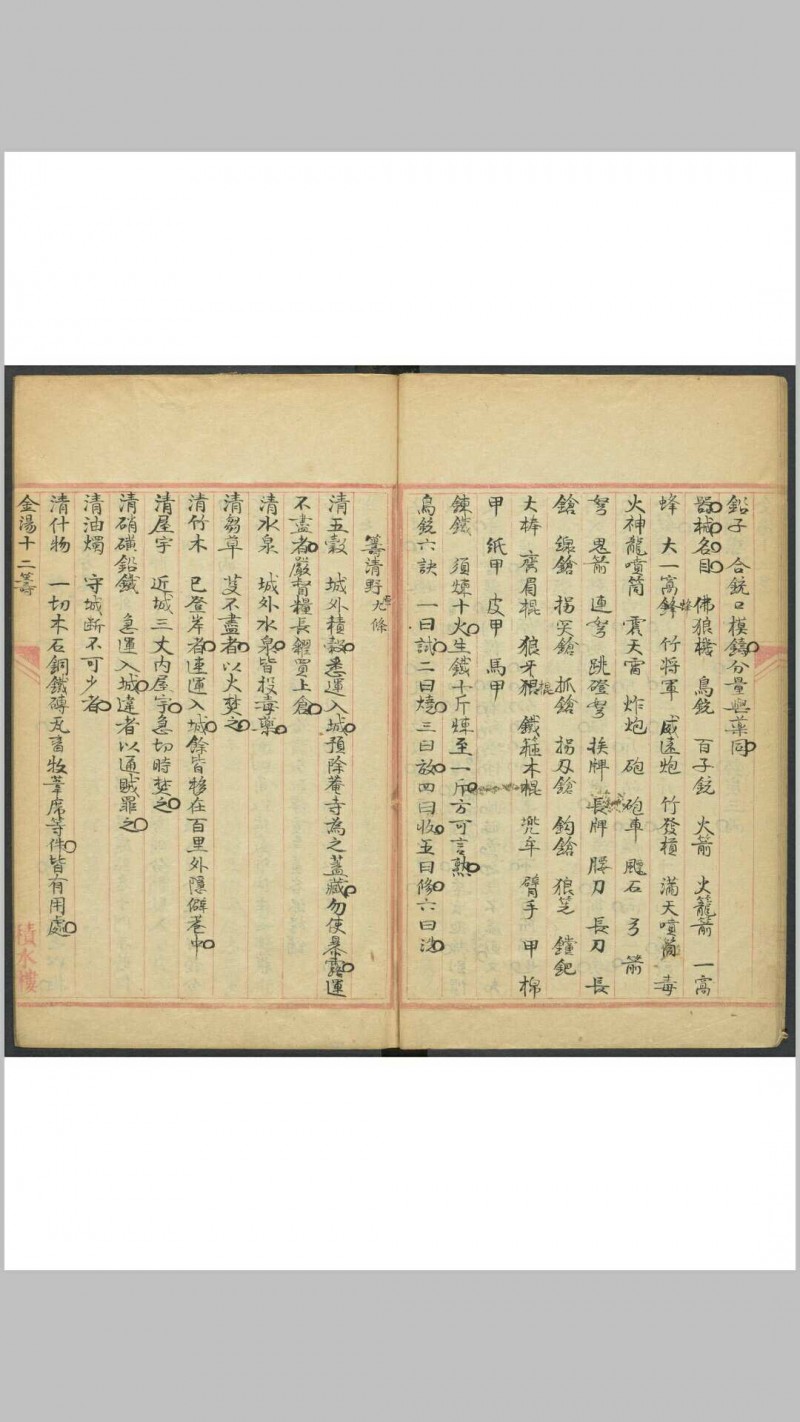 鉛子　合銃口模鑄分量與藥同
器械名目　佛狼機　鳥銃　百子銃　火箭　火籠箭　一窩
蜂　大一窩鋒　竹將軍　威遠炮　竹發槓　滿天噴筒　毒
火神龍噴筒　震天雷　炸炮　砲　砲車　颺石　弓　箭
弩　鬼箭　連弩　跳磴弩　挨牌　長牌　腰刀　長刀　長
鎗　線鎗　拐突鎗　抓鎗　拐刃鎗　鈎鎗　狼芝　鏜鈀
大棒　齊眉棍　狼牙棍　鐵箍木棍　兜牟　臂手　甲　棉
甲　紙甲　皮甲　馬甲
鍊鐵　須煉十火生鐵十斤煉至一斤方可言熟
鳥銃六訣　一曰試二曰燒三曰放四曰收五曰修六曰洗
籌清野九條
清五穀　城外積穀悉運入城預除菴寺為之蓋藏勿使暴露運
不盡者嚴督糧長糴買上倉
清水泉　城外水泉皆投毒藥
清芻草　芟不盡者以火焚之
清竹木　已登岸者速運入城餘皆移在百里外隱僻巷中
清屋宇　近城三丈內屋宇急切時焚之
清硝磺鉛鐵　急運入城違者以通賊罪之
清油燭　守城断不可少者
清什物　一切木石銅鐵磚瓦畜牧葦席等件皆有用處
金湯十二籌
積水樓